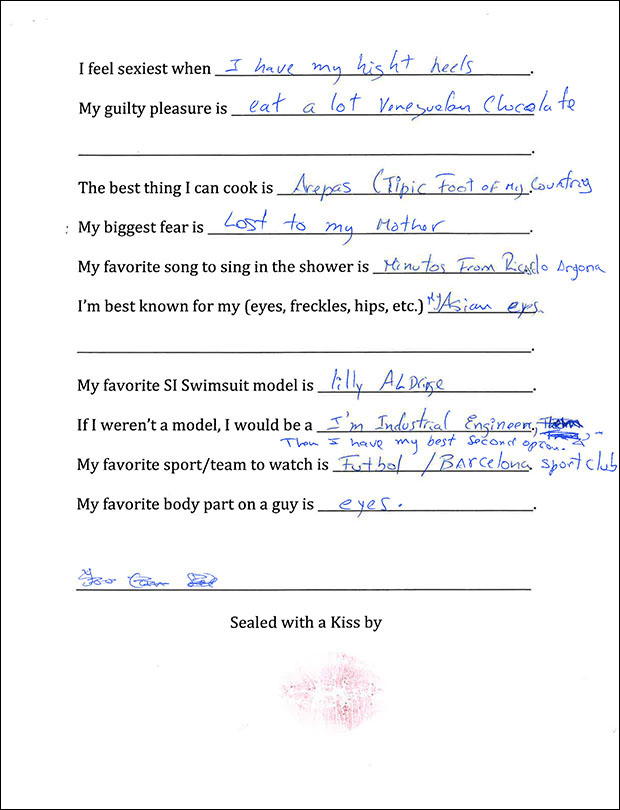 I feel sexiest when I have my hight heels.
My guilty pleasure is eat a lot Venezuelan Chocolate
The best thing I can cook is Arepas (Tipic Foot of My Country
My biggest fear is Lost to my Mother.
My favorite song to sing in the shower is Minutos From Ricardo Argona
I'm best known for my (eyes, freckles, hips, etc.) My Asian eyes.
My favorite SI Swimsuit model is lilly ALDRige.
If I weren't a model, I would be a I'm Industrial Engineer,
Then I have my best second option.
My favorite sport/team to watch is Futbol / BARcelona sport club
My favorite body part on a guy is eyes.
Sealed with a Kiss by